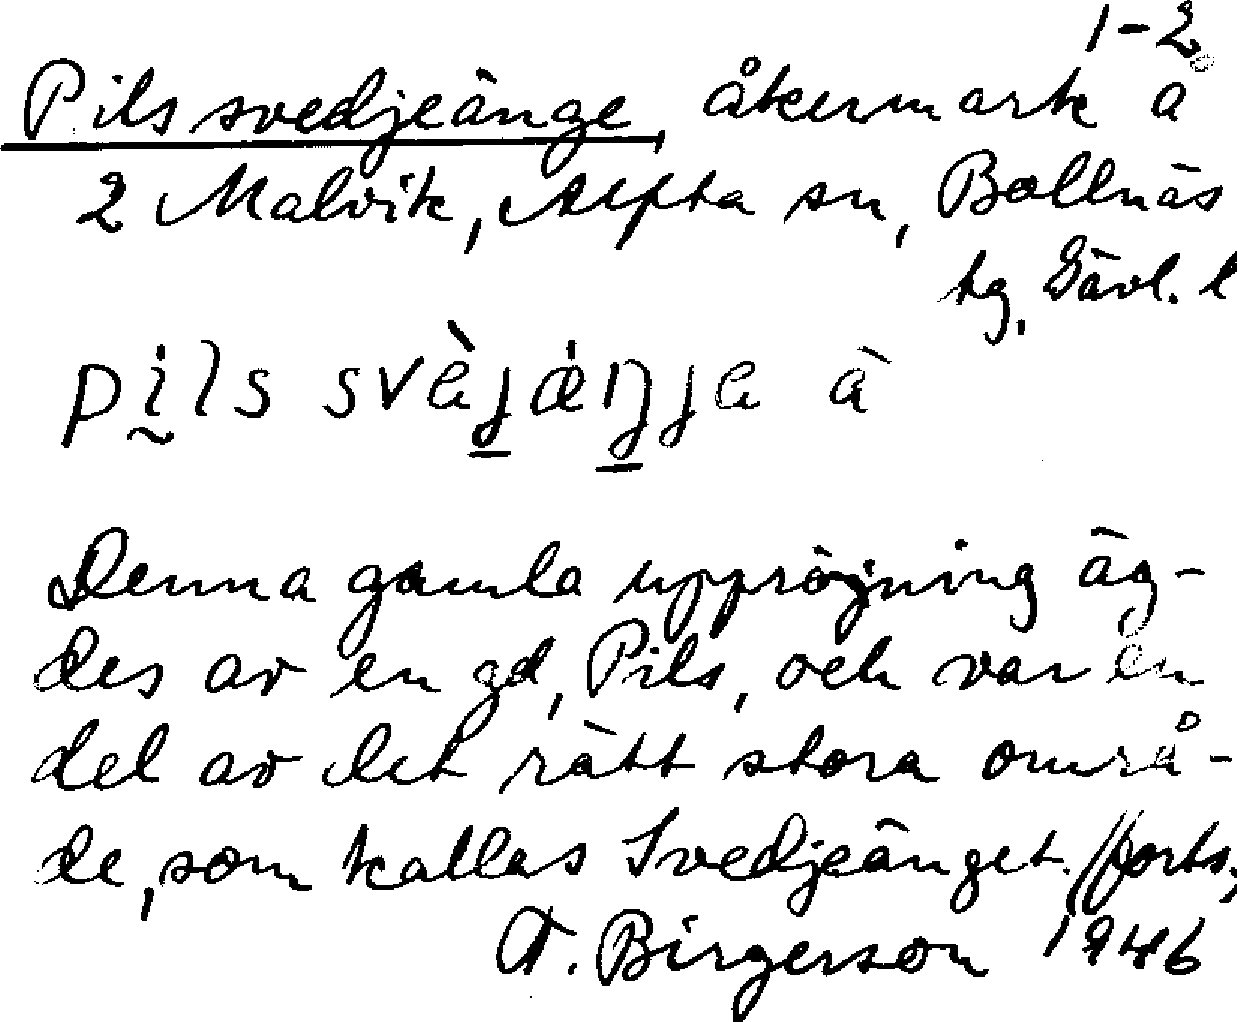 1-2
Pilssvedjeänge, åkermark å
2 Malvik, Alfta sn, Bollnäs
tg, Gävl. l
pils svèjäŋje
Denna gamla uppröjning äg-
des av en gd, Pils, och var en
del av det rätt stora områ-
de, som kallas Svedjeänget. //forts,
A. Birgerson 1946